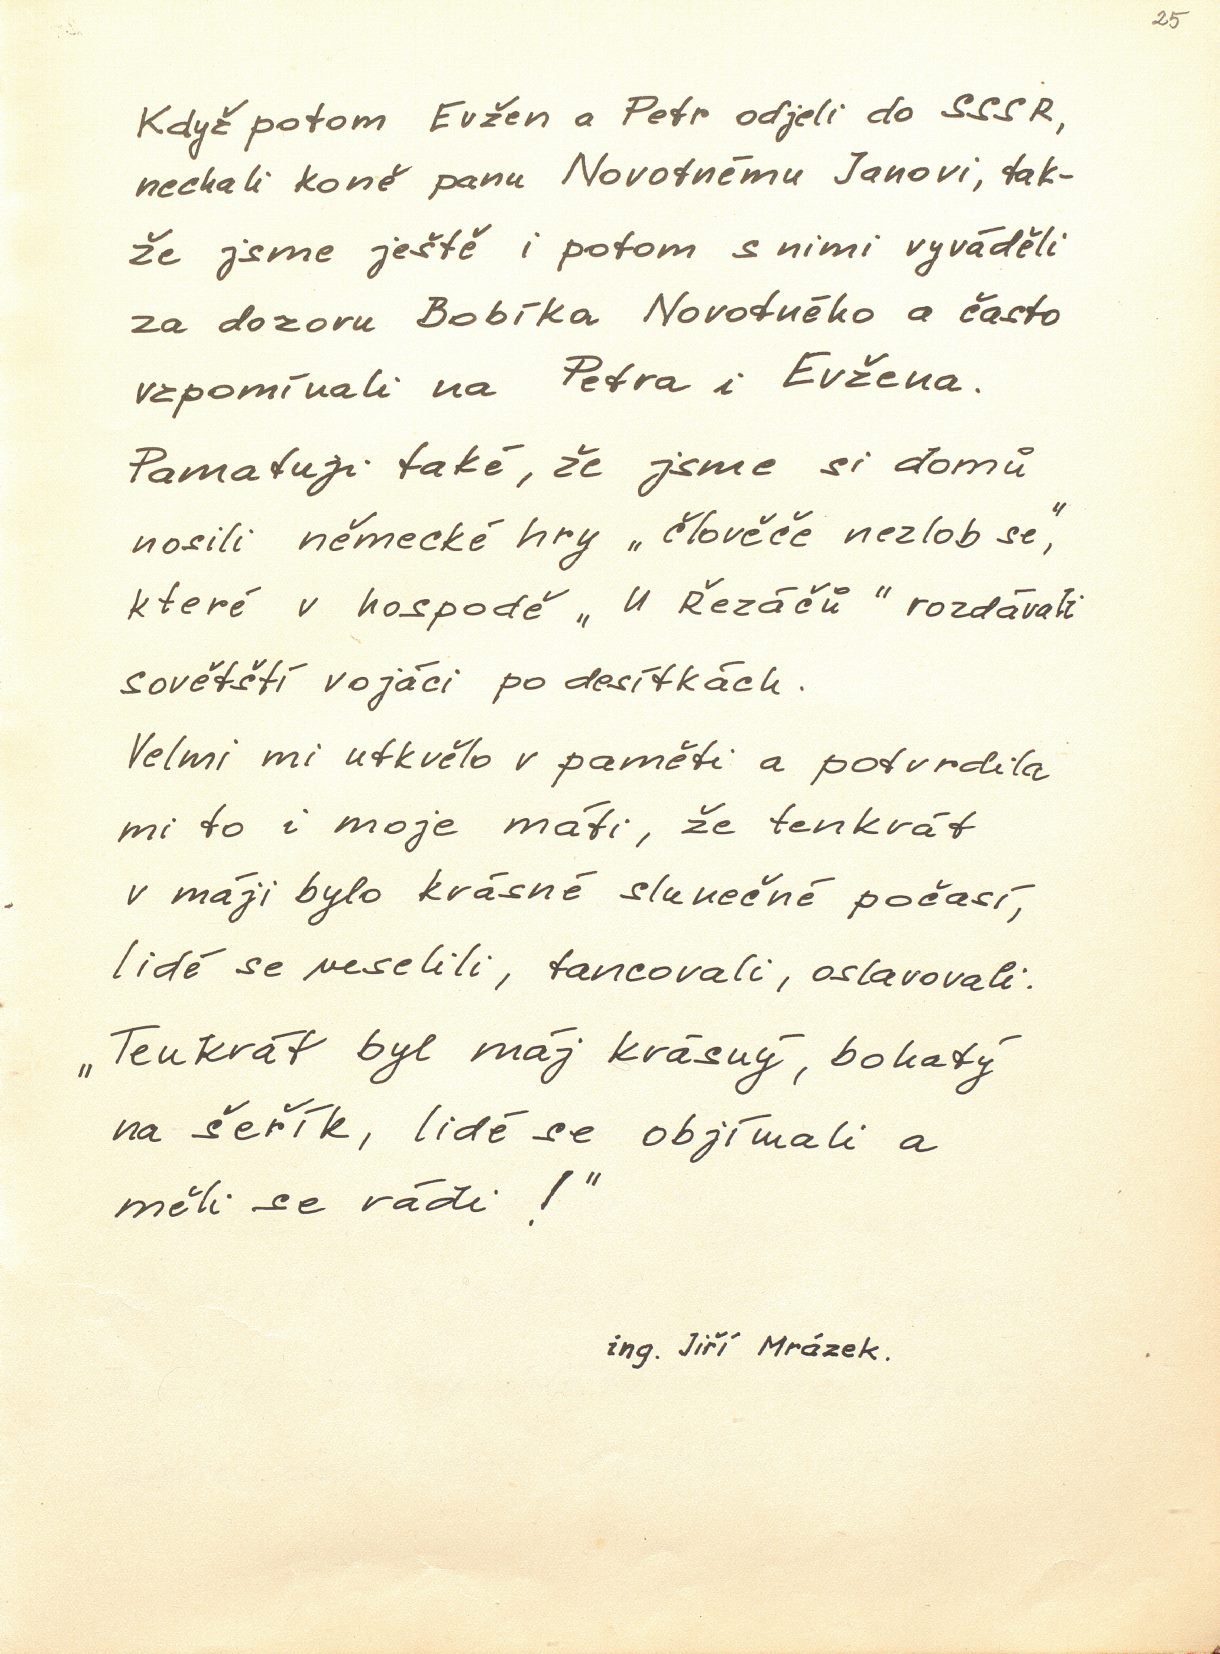 25
Když potom Evžen a Petr odjeli do SSSR,
nechali koně panu Novotnému Janovi, tak-
že jsme ještě i potom s nimi vyváděli
za dozoru Bobíka Novotného a často
vzpomínali na Petra i Evžena.
Pamatuji také, že jsme si domů
nosili německé hry „člověče nezlob se",
které v hospodě „U Řezáčů" rozdávali
sovětští vojáci po desítkách.
Velmi mi utkvělo v paměti a potvrdila
mi to i moje máti, že tenkrát
v máji bylo krásné slunečné počasí,
lidé se veselili, tancovali, oslavovali.
„Tenkrát byl máj krásný, bohatý
na šeřík, lidé se objímali a
měli se rádi!"
ing. Jiří Mrázek.